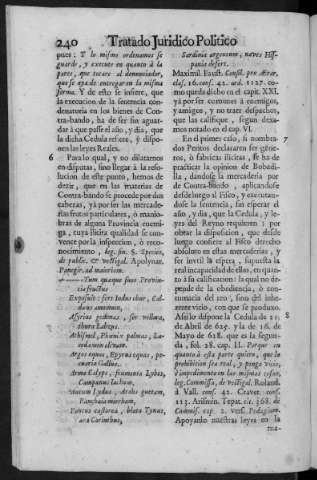 240 Tratado Juridico Politico
pues: Y lo mismo ordenamos se
guarde, y execute en quanto à la
parte, que tocare al denunciador,
que se ayade entregar en la misma
forma. Y de esto se infiere, que
la execucion de la sentencia con-
denatoria en los bienes de Con-
tra-bando, ha de ser sin aguar-
dar à que passe el año, y dia, que
la dicha Cedula refiere, y dispo-
nen las leyes Reales.
6 Para lo qual, y no dilatarnos
en disputas, sino llegar à la reso-
lucion de este punto, hemos de
dezir, que en las materias de
Contra-bando se procede por dos
caberas, yà por ser las mercade-
rias frutos particulares, ò manio-
bras de alguna Provincia enemi-
ga, cuya ilicita qualidad se con-
vence por la inspeccion, ò reco-
nocimiento, leg. fin. §. Species,
de public. & vectigal. Apolynar.
Panegir. ad maiorinm.
Tum quæque suos Provin-
cia fructus
Exposuit: fert Indus ebur, Cal-
daus amomum,
Assyrius gemmas, ser vellera,
thura Labæus.
Athis mel, Phœnix palmas, La-
cedæmon olivum.
Argos equos, Epyrus equas, pe-
cuaria Gallus.
Arma Calyps, frumenta Lybes,
Campanus Iachum,
Aurum Lydus, Arabs guttam,
Panchaia mirrham,
Pontus castorea, blata Tyrus,
æra Corinthus,
Sardinia argentum, naves His-
pania defert.
Maximil. Faust. Consil. pro Ærar.
clas. 16. conf. 42. ord. 1127. co-
mo queda dicho en el capit. XXI.
yà por ser comunes à enemigos,
y amigos, y no traer despachos,
que las califique, segun dexa-
mos notado en el cap. VI.
7 En el primer caso, si nombra-
dos Peritos declararen ser géne-
ros, ò fabricas ilicitas, se ha de
practicar la opinion de Bobadi-
lla, dandose la mercaderia por
de Contra-bando, aplicandose
desde luego al Fisco, y executan-
dose la sentencia, sin esperar el
año, y dia, que la Cedula, y le-
yes del Reyno requieren; por
obrar la disposicion, que desde
luego confiere al Fisco derecho
absoluto en estas mercaderias, y
ser inutil la espera, siquiera la
real incapacidad de ellas, en quan-
to à su calificacion: la qual no de-
pende de la obediencia, ò con-
tumacia del reo, sino del inhe-
rente vicio, con que se produxo.
8 Assi lo dispone la Cedula de 21.
de Abril de 625. y la de 16. de
Mayo de 628. que es la segun-
da, fol. 28. cap. II. Porque en
quanto à esta parte quiero, que la
prohibicion sea real, y ponga vicio,
è impedimento en las mismas cosas,
leg. Commissa, de vectigal. Roland.
à Vall. conf. 42. Cravet. cons.
123. Anselm. Tepat. tit. 368. de
Commiss. cap. 2. vers. Pedagium.
Apoyanlo nuestras leyes en la
ma-